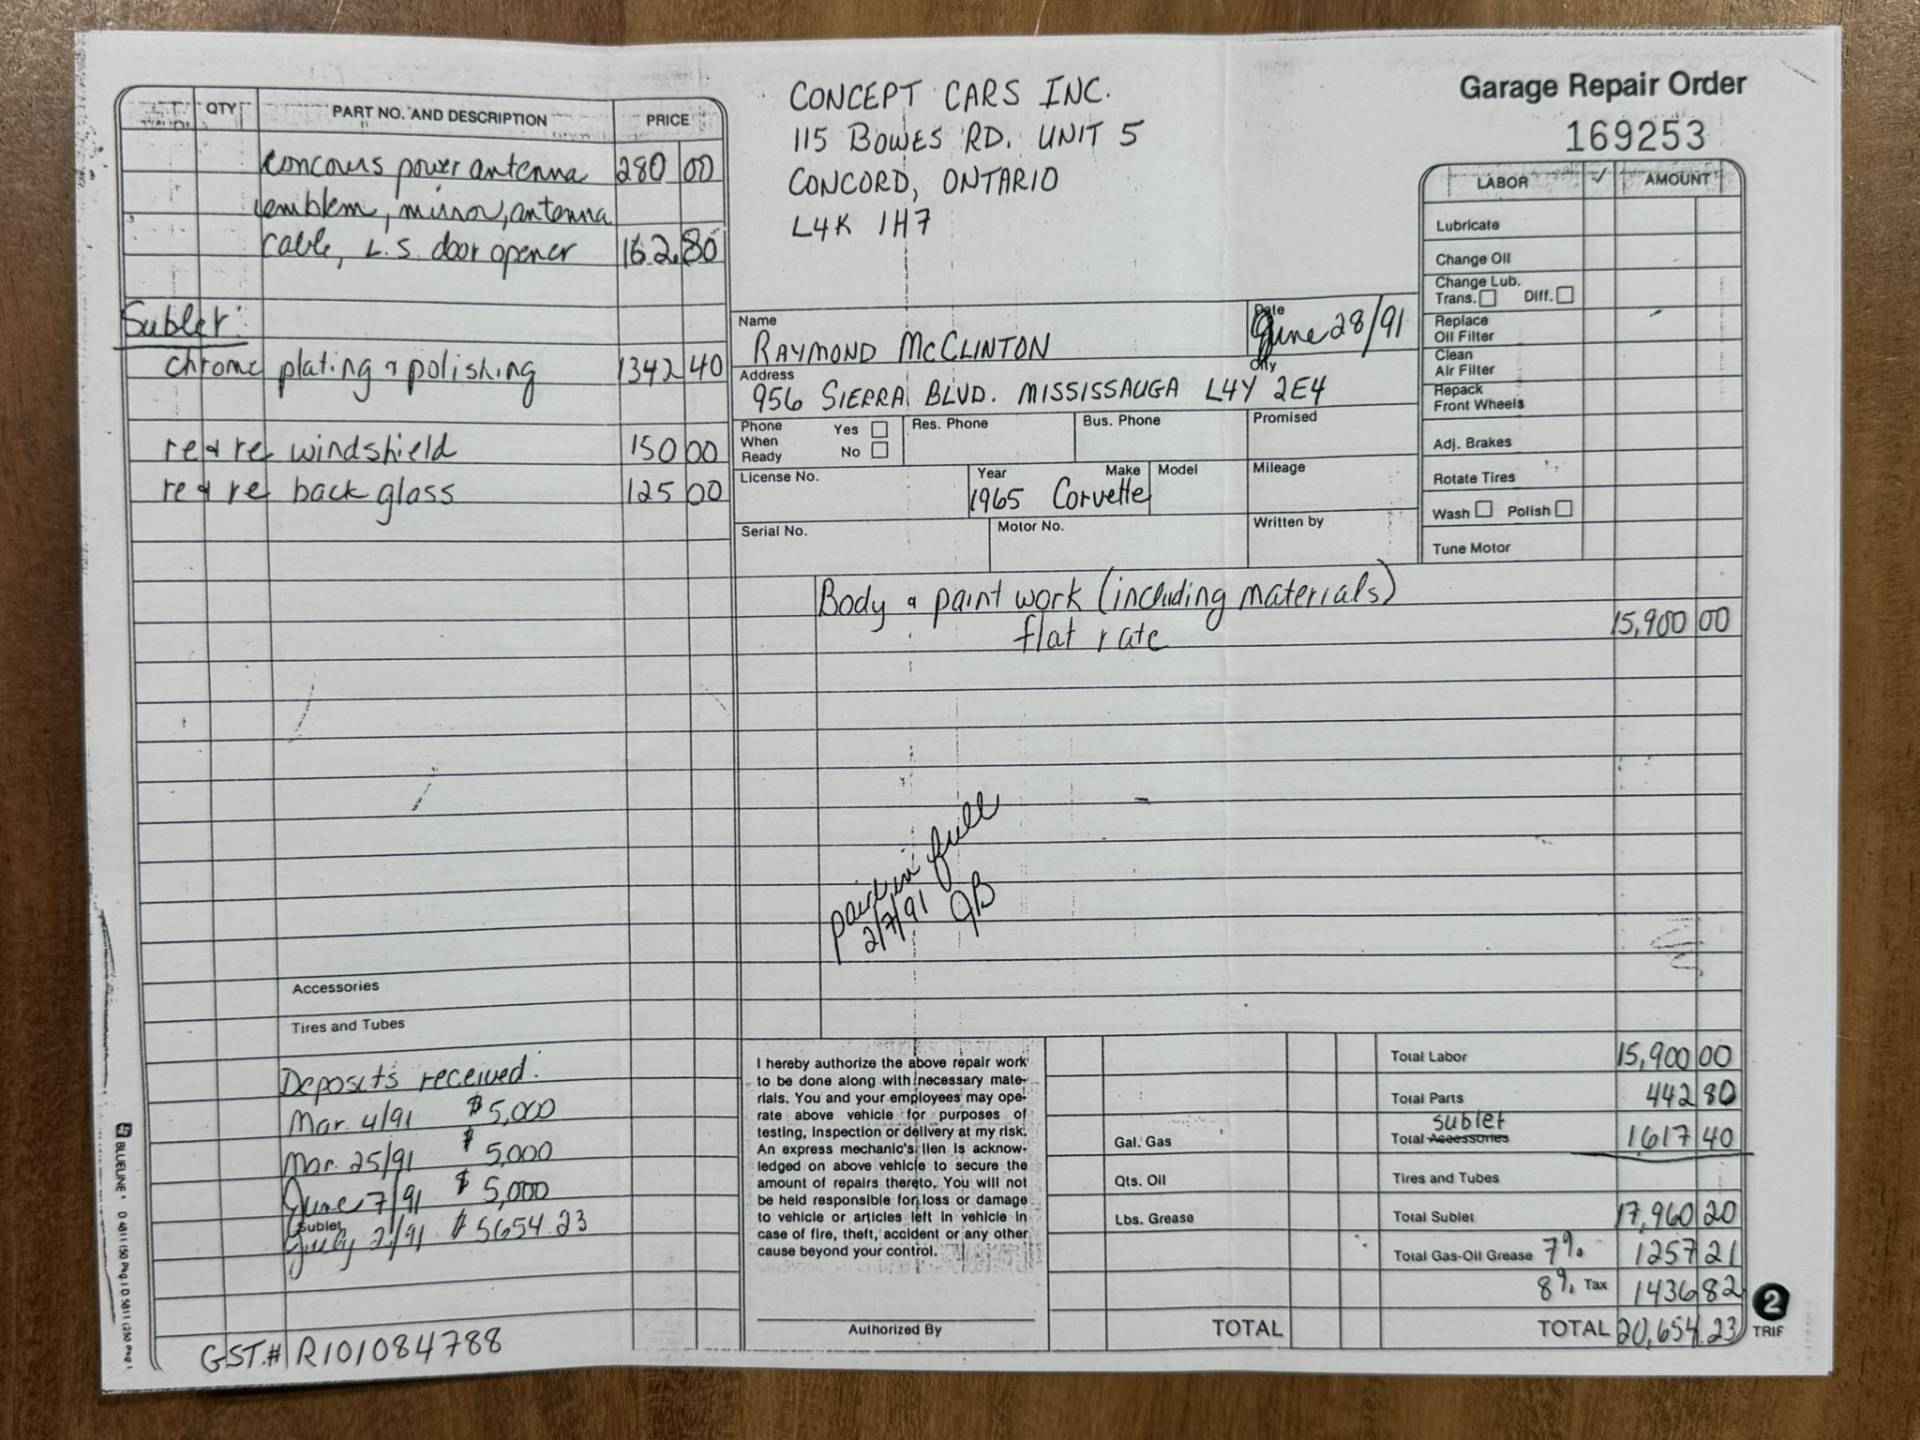 Garage Repair Order
169253
CONCEPT CARS INC.
115 BOWES RD. UNIT 5
CONCORD, ONTARIO
L4K 1H7
QTY PART NO. AND DESCRIPTION PRICE
concours power antenna 280 00
emblem, mirror, antenna
cable, L.S. door opener 162.80
Sublet:
chrome plating & polishing 1342 40
re & re windshield 150 00
re & re back glass 125 00
Accessories
Tires and Tubes
Deposits received:
Mar. 4/91 $5,000
Mar. 25/91 $5,000
June 7/91 $5,000
Sublet
July 2/91 $5654.23
GST.# R101084788
Name
RAYMOND McCLINTON
Date
June 28/91
Address City
956 SIERRA BLVD. MISSISSAUGA L4Y 2E4
Phone When Ready Yes No Res. Phone Bus. Phone Promised
License No. Year Make Model Mileage
1965 Corvette
Serial No. Motor No. Written by
LABOR ✓ AMOUNT
Lubricate
Change Oil
Change Lub.
Trans. Diff.
Replace
Oil Filter
Clean
Air Filter
Repack
Front Wheels
Adj. Brakes
Rotate Tires
Wash Polish
Tune Motor
Body & paint work (including materials)
flat rate 15,900 00
paid in full
2/7/91 JB
I hereby authorize the above repair work
to be done along with necessary mate-
rials. You and your employees may ope-
rate above vehicle for purposes of
testing, inspection or delivery at my risk.
An express mechanic's lien is acknow-
ledged on above vehicle to secure the
amount of repairs thereto. You will not
be held responsible for loss or damage
to vehicle or articles left in vehicle in
case of fire, theft, accident or any other
cause beyond your control.
Authorized By
Gal. Gas
Qts. Oil
Lbs. Grease
TOTAL
Total Labor 15,900 00
Total Parts 442 80
sublet
Total Accessories 1617 40
Tires and Tubes
Total Sublet 17,960 20
Total Gas-Oil Grease 7% 1257 21
8% Tax 1436 82
TOTAL 20,654.23
2
TRIF
BLUELINE